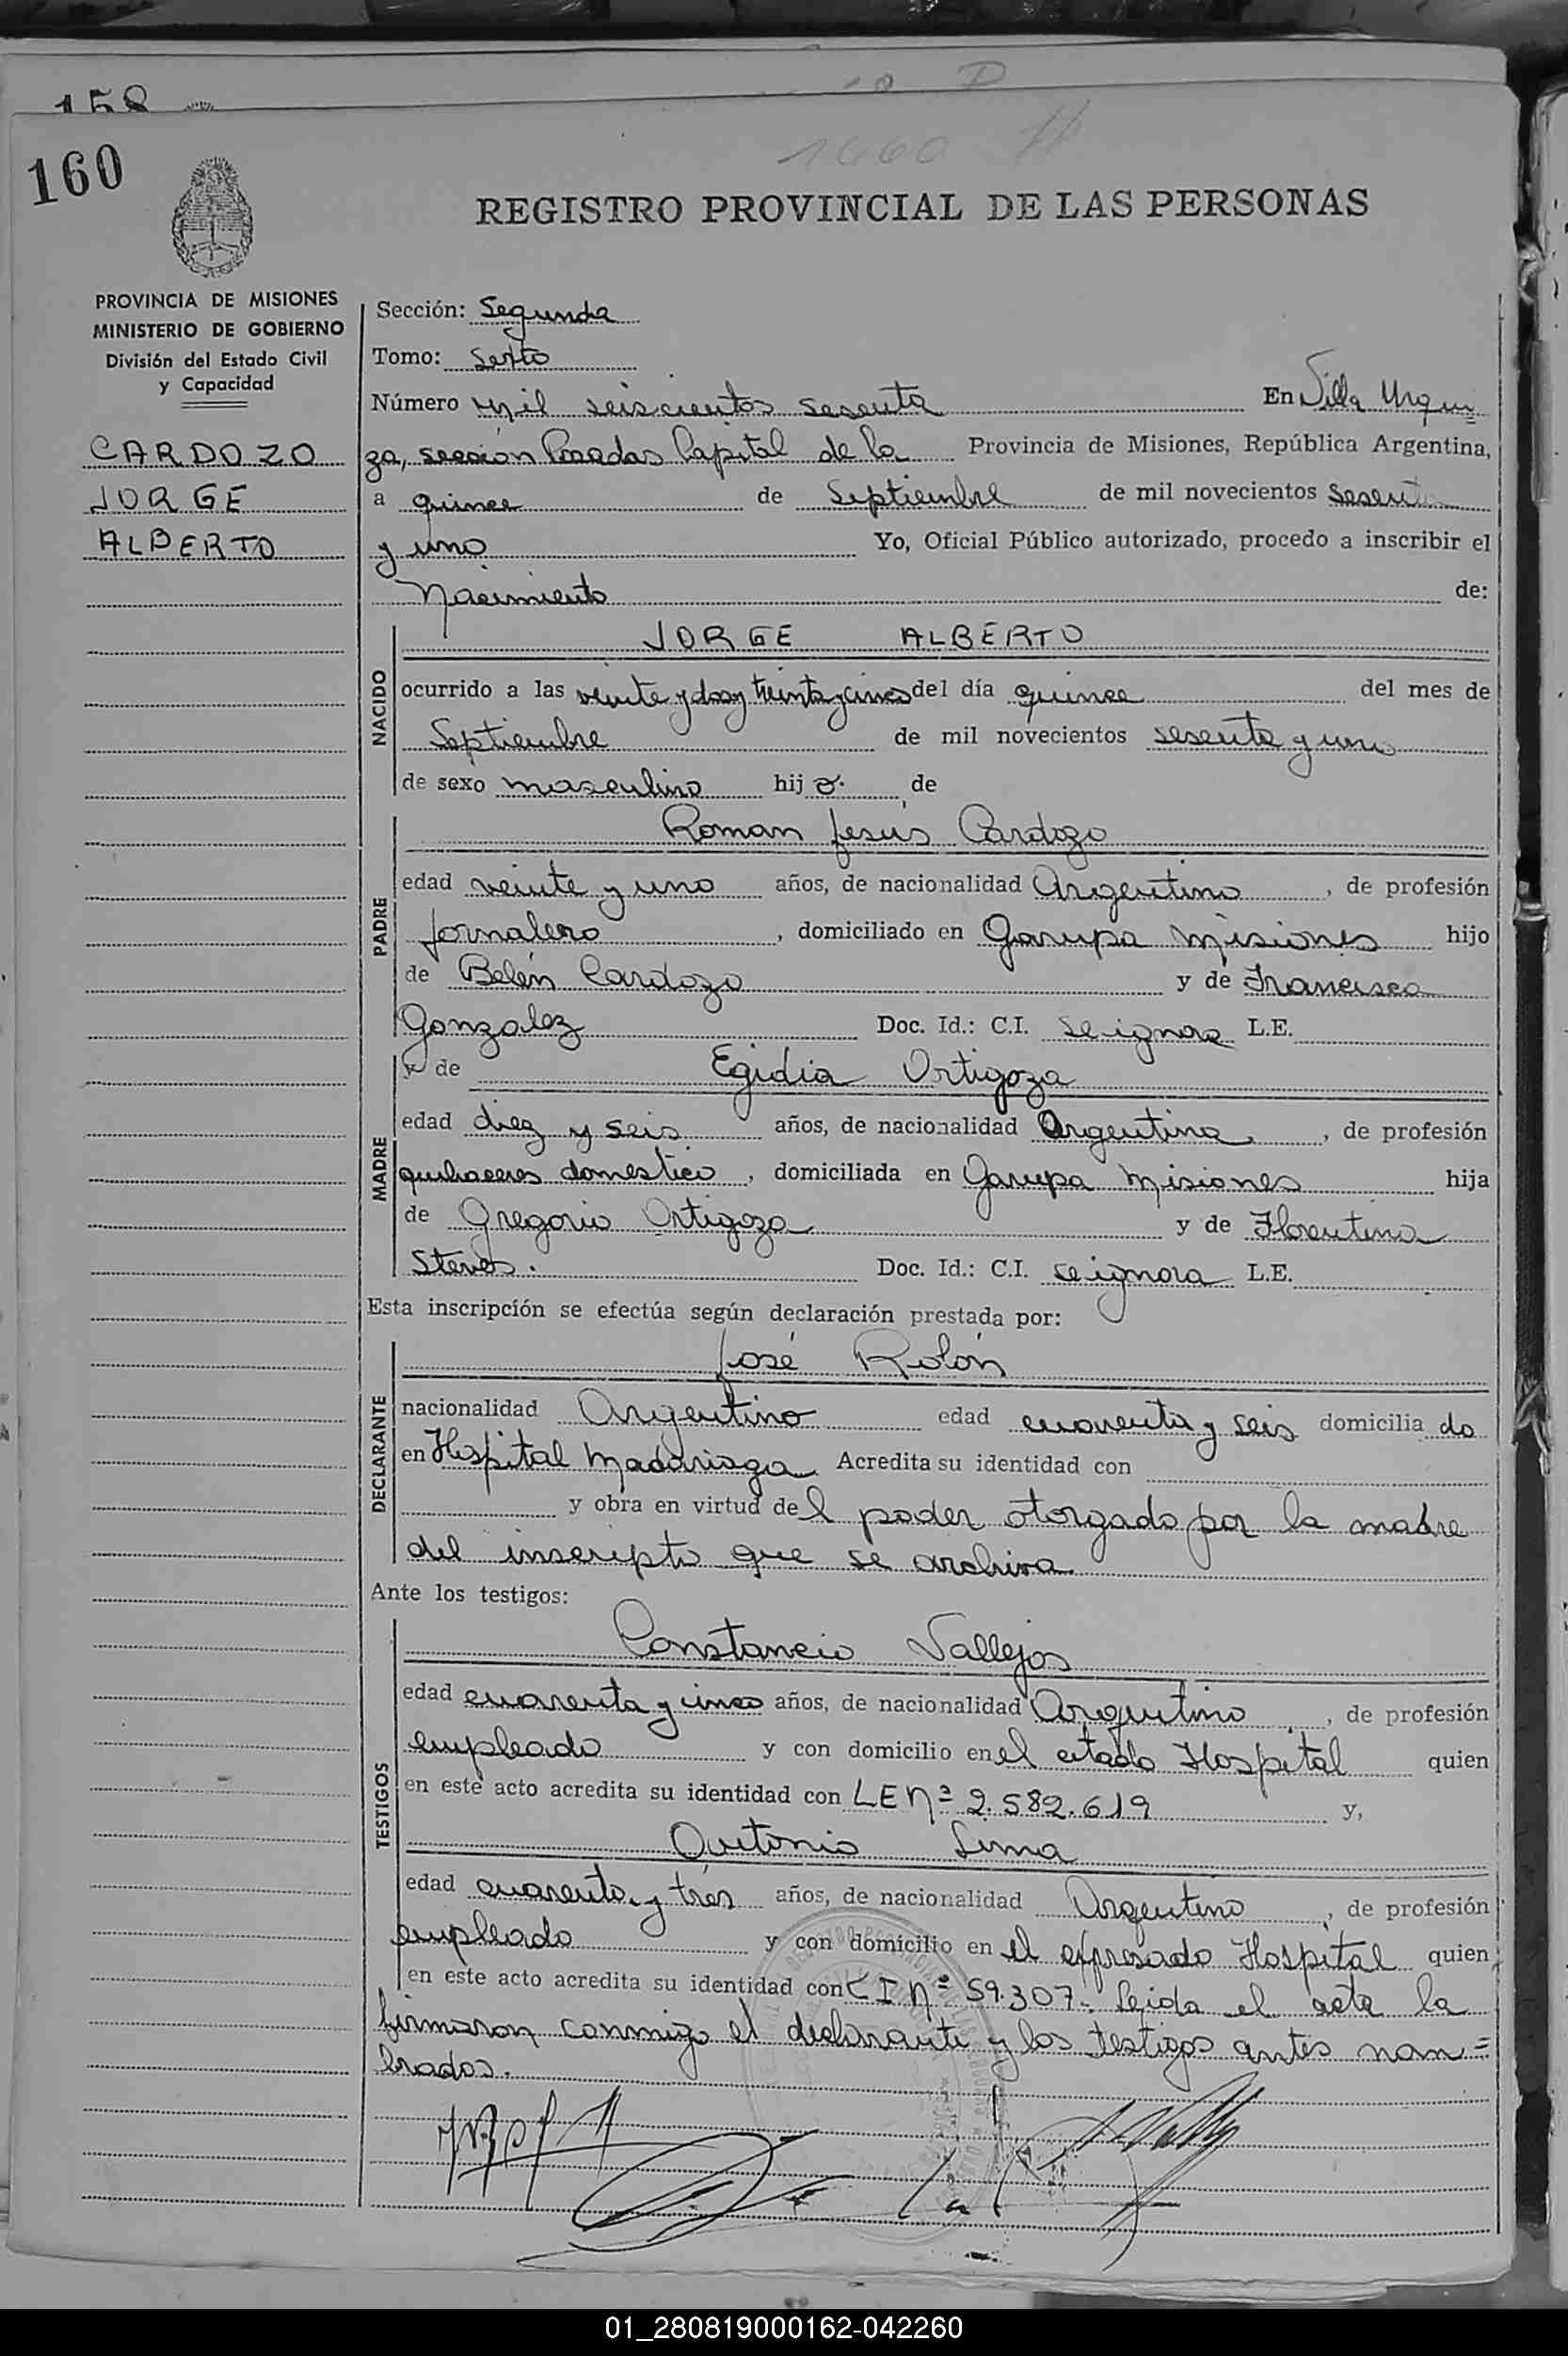 158
160
1660
REGISTRO PROVINCIAL DE LAS PERSONAS
PROVINCIA DE MISIONES
MINISTERIO DE GOBIERNO
División del Estado Civil
y Capacidad
CARDOZO
JORGE
ALBERTO
Sección: Segunda
Tomo: Sexto
Número mil seiscientos sesenta En Villa Urqui
za, sección Posadas Capital de la Provincia de Misiones, República Argentina,
a quince de Septiembre de mil novecientos sesenta
y uno Yo, Oficial Público autorizado, procedo a inscribir el
Nacimiento de:
NACIDO
JORGE ALBERTO
ocurrido a las veinte y dos y treinta y cinco del día quince del mes de
Septiembre de mil novecientos sesenta y uno
de sexo masculino hij o. de
PADRE
Roman Jesús Cardozo
edad veinte y uno años, de nacionalidad Argentino, de profesión
Jornalero, domiciliado en Garupa Misiones hijo
de Belén Cardozo y de Francisca
Gonzalez Doc. Id.: C.I. se ignora L.E.
MADRE
y de Egidia Ortigoza
edad diez y seis años, de nacionalidad Argentina, de profesión
quehaceres domestico, domiciliada en Garupa Misiones hija
de Gregorio Ortigoza y de Florentina
Steves. Doc. Id.: C.I. se ignora L.E.
Esta inscripción se efectúa según declaración prestada por:
DECLARANTE
José Rolón
nacionalidad Argentino edad cuarenta y seis domicilia do
en Hospital Madariaga Acredita su identidad con
y obra en virtud de l poder otorgado por la madre
del inscripto que se archiva.
Ante los testigos:
TESTIGOS
Constancio Vallejos
edad cuarenta y cinco años, de nacionalidad Argentino, de profesión
empleado y con domicilio en el citado Hospital quien
en este acto acredita su identidad con LE Nº 2.582.619 y,
Antonio Lima
edad cuarenta y tres años, de nacionalidad Argentino, de profesión
empleado y con domicilio en el expresado Hospital quien
en este acto acredita su identidad con CI Nº 59.307. Leida el acta la
firmaron conmigo el declarante y los testigos antes nom=
brados.
01_280819000162-042260